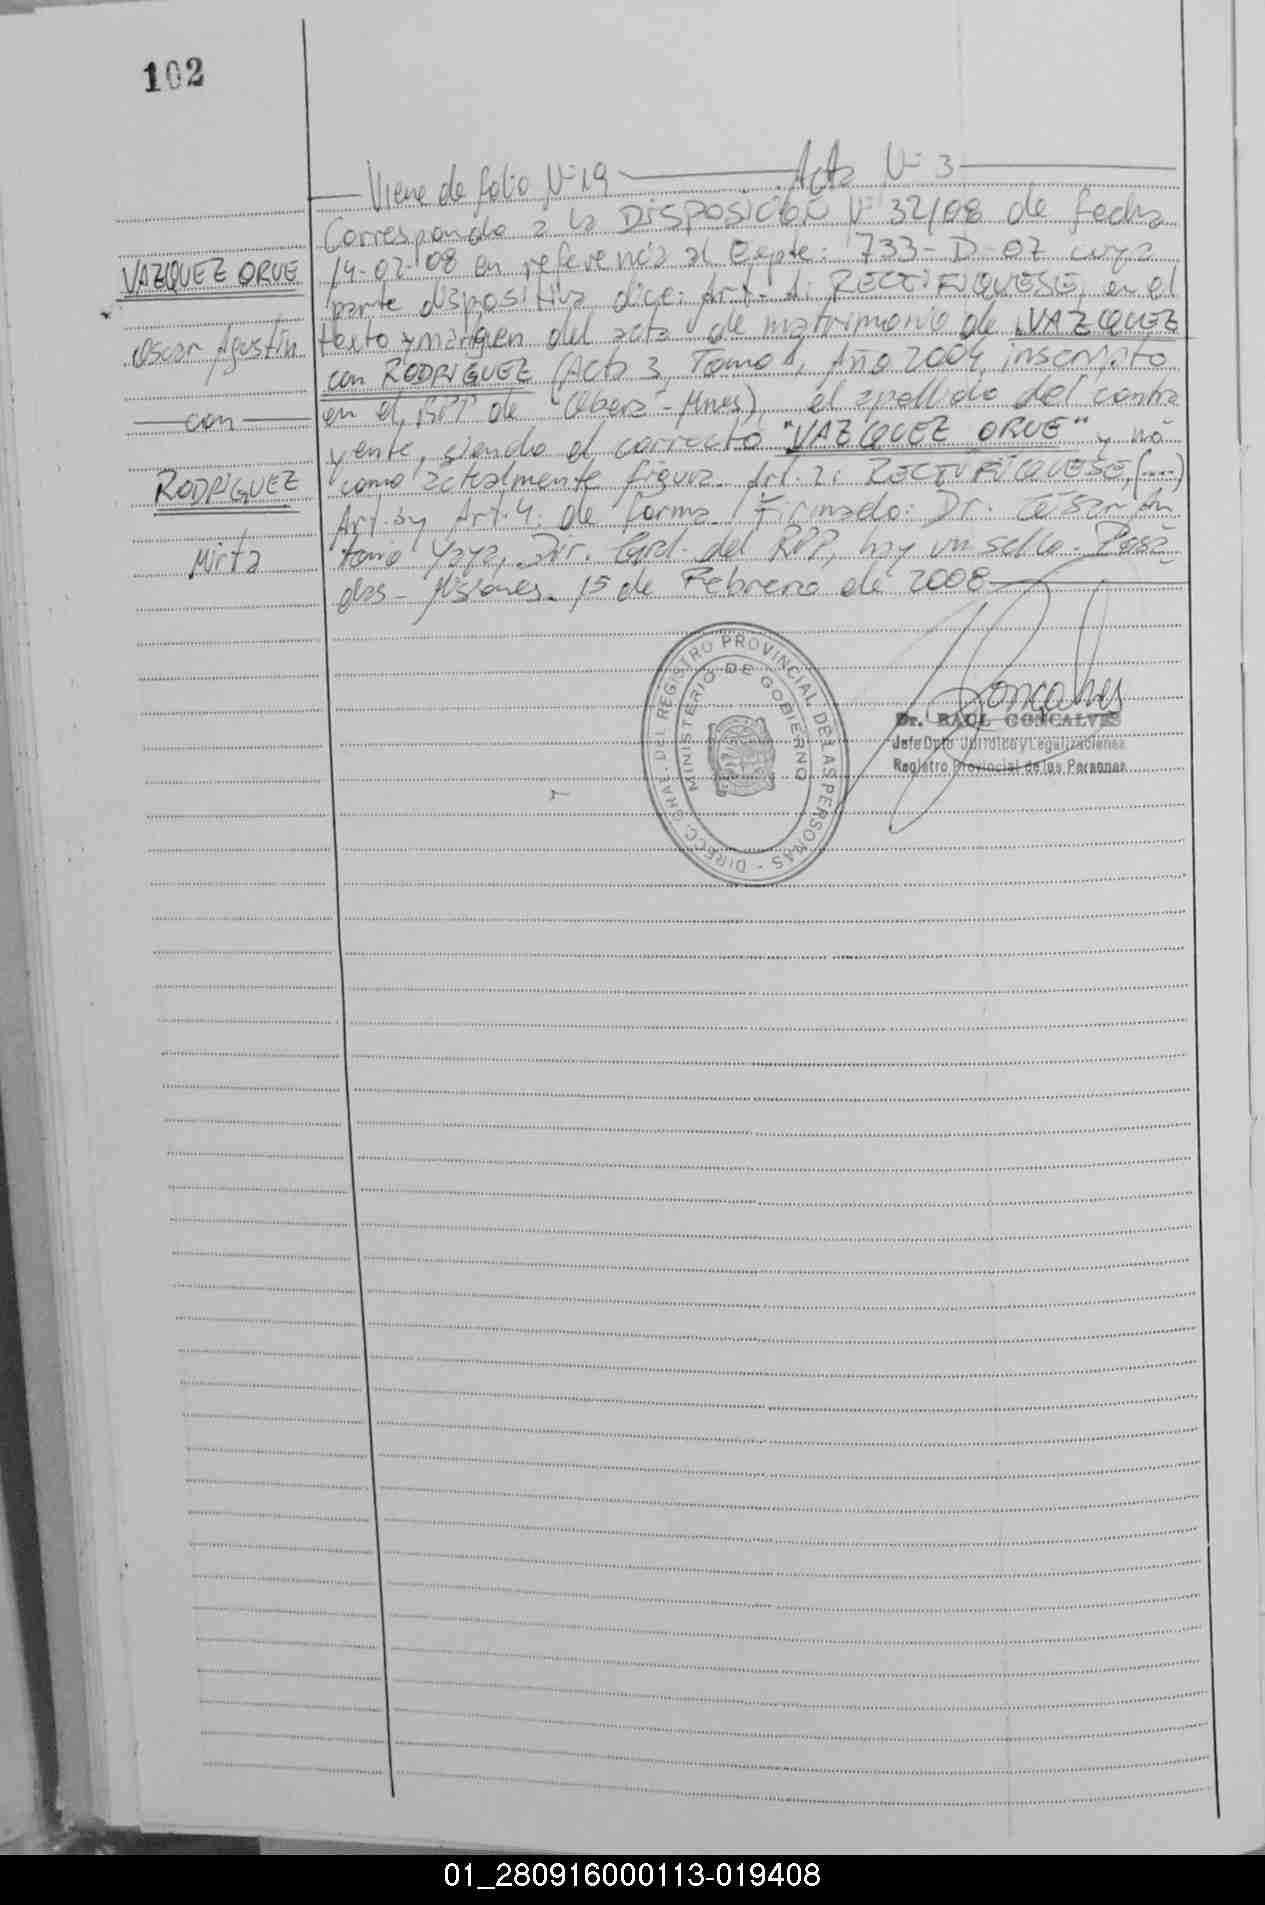 102
Viene de folio N° 19 Acta N° 3
Corresponde a la DISPOSICIÓN N° 32/08 de fecha
14-02-08 en referencia al Expte: 733-D-07 cuya
parte dispositiva dice: Art. 1: RECTIFIQUESE, en el
texto y margen del acta de matrimonio de VAZQUEZ
con RODRIGUEZ (Acta 3, Tomo 1, Año 2004, inscripto
en el RPP de Oberá - Mnes), el apellido del contra
yente, siendo el correcto "VAZQUEZ ORUE" y no
como actualmente figura. Art. 2: RECTIFIQUESE, (....)
Art. 3 y Art. 4: de forma. Firmado: Dr. César An
tonio Yaya, Dir. Gral. del RPP, hay un sello. Posa
das - Misiones. 15 de Febrero de 2008
VAZQUEZ ORUE
Oscar Agustín
con
RODRIGUEZ
Mirta
DIRECC. GRAL. DEL REGISTRO PROVINCIAL DE LAS PERSONAS
MINISTERIO DE GOBIERNO
Goncalves
Dr. RAUL GONCALVES
Jefe Dpto Jurídico y Legalizaciones
Registro Provincial de las Personas
01_280916000113-019408